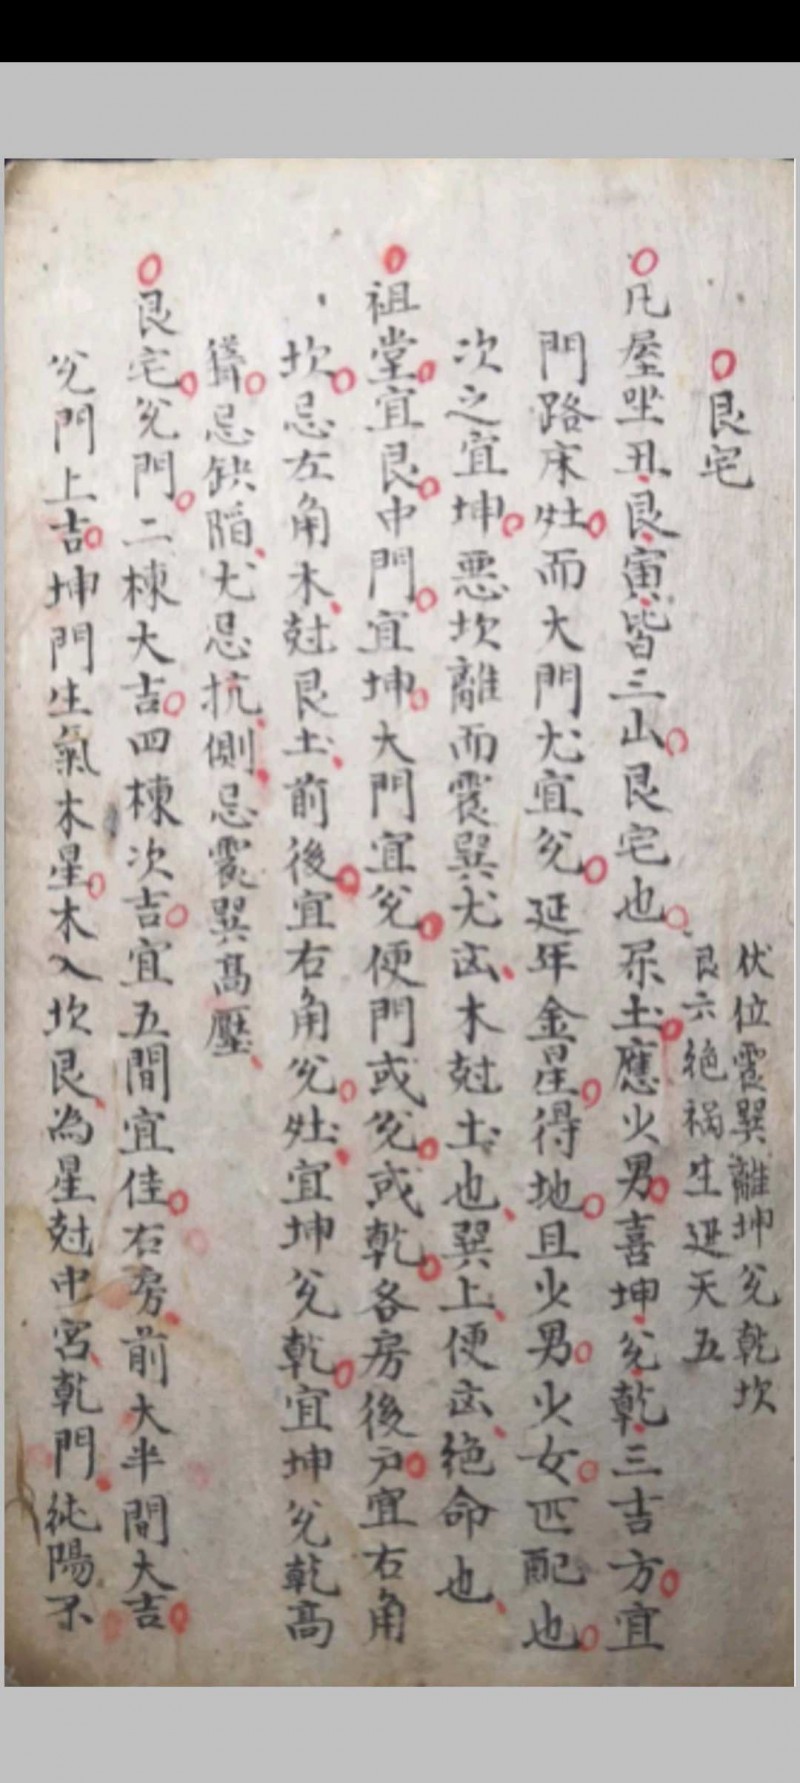 艮宅
伏位震巽離坤兊乾坎
艮六絶禍生延天五
凡屋坐丑艮寅皆三山艮宅也屬土應少男喜坤兊乾三吉方宜
門路床灶而大門尤宜兊延年金星得地且少男少女匹配也
次之宜坤惡坎離而震巽尤凶木尅土也巽上便凶絶命也
祖堂宜艮中門宜坤大門宜兊便門或兊或乾各房後户宜右角
坎忌左角木尅艮土前後宜右角兊灶宜坤兊乾宜坤兊乾高
聳忌缺陷尤忌抗側忌震巽高壓
艮宅兊門二棟大吉四棟次吉宜五間宜住右房前大半間大吉
兊門上吉坤門生氣木星木入坎艮為星尅中宮乾門純陽不